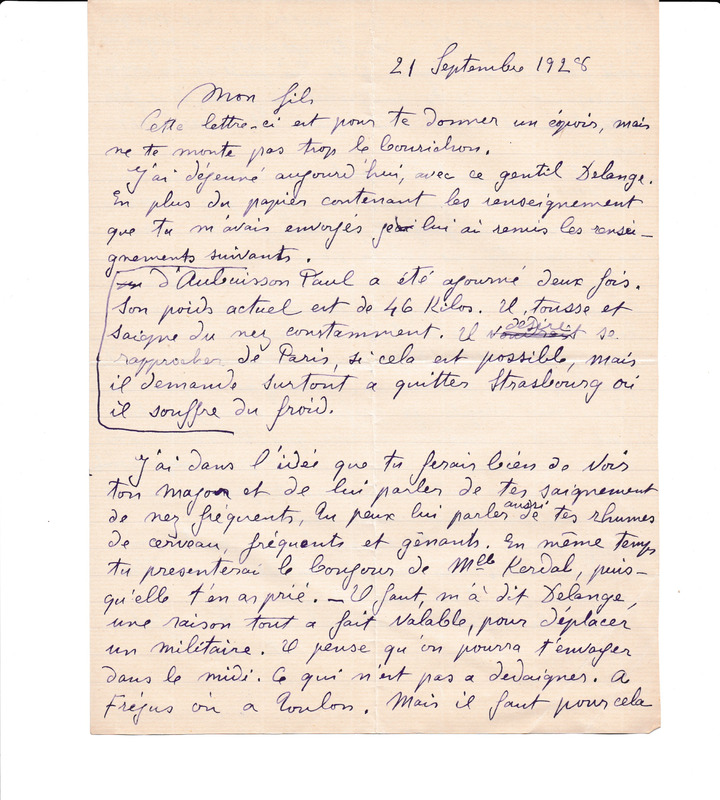 21 Septembre 1928
Mon fils
Cette lettre-ci est pour te donner un éspoir, mais
ne te monte pas trop le bourichon.
J'ai déjeuné aujourd'hui, avec ce gentil Delange.
En plus du papier contenant les renseignement
que tu m'avais envoyés je lui ai remis les rensei-
gnements suivants.
d'Aubuisson Paul a été ajourné deux fois.
Son poids actuel est de 46 Kilos. Il, tousse et
saigne du nez constamment. Il désire se
rapprocher de Paris, si cela est possible, mais
il demande surtout a quitter Strasbourg où
il souffre du froid.
J'ai dans l'idée que tu ferais bien de voir
ton major et de lui parler de tes saignement
de nez fréquents, tu peux lui parler aussi de tes rhumes
de cerveau, fréquents et gênants. En même temps
tu presenterai le bonjour de Mlle Kerdal, puis-
qu'elle t'en as prié. — Il faut, m'à dit Delange,
une raison tout a fait válable, pour déplacer
un militaire. Il pense qu'on pourra t'envoyer
dans le midi. Ce qui n'est pas a dedaigner. A
Fréjus où a Toulon. Mais il faut pour cela